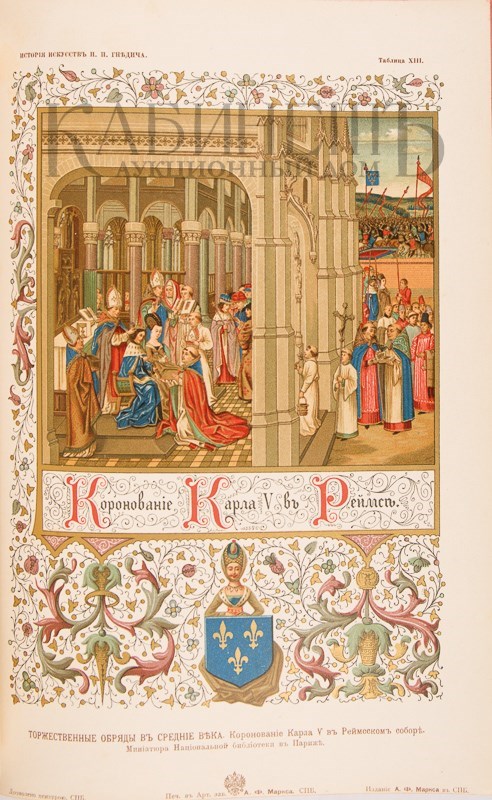 ИСТОРІЯ ИСКУССТВЪ П. П. ГНѢДИЧА.
Таблица XIII.
КАБИНЕТЪ
АУКЦИОННЫЙ ДОМ
Коронованіе Карла V въ Реймсѣ.
ТОРЖЕСТВЕННЫЕ ОБРЯДЫ ВЪ СРЕДНІЕ ВѢКА. Коронованіе Карла V въ Реймсскомъ соборѣ.
Миніатюра Національной библіотеки въ Парижѣ.
Дозволено цензурою, СПБ.
Печ. въ Арт. зав. А. Ф. Маркса, СПБ.
Изданіе А. Ф. Маркса въ СПБ.